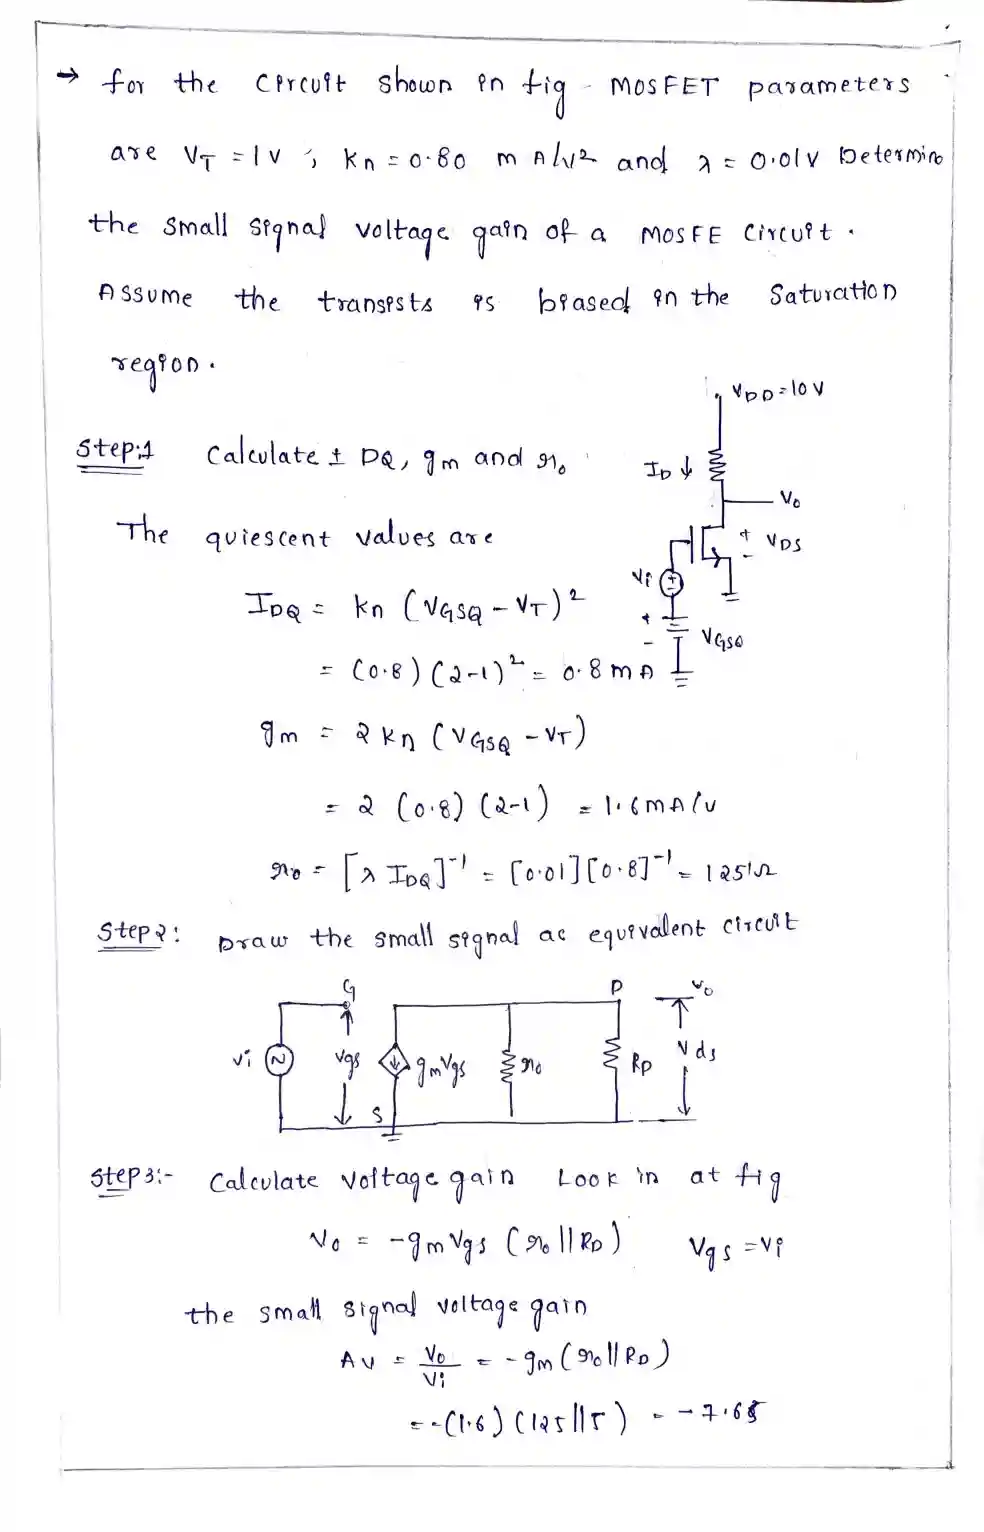 → for the circuit shown in fig - MOSFET parameters
are VT = 1V ; Kn = 0.80 mA/V2 and λ = 0.01V Determine
the small signal voltage gain of a MOSFE circuit.
Assume the transists is biased in the Saturation
region.
VDD = 10V
Step:1 Calculate ± DQ, gm and ro
ID ↓
Vo
The quiescent values are
+ VDS -
Vi
IDQ = kn (VGSQ - VT)²
+ - VGSQ
= (0.8) (2-1)² = 0.8 mA
gm = 2 Kn (VGSQ - VT)
= 2 (0.8) (2-1) = 1.6 mA/V
ro = [λ IDQ]⁻¹ = [0.01][0.8]⁻¹ = 125Ω
Step 2: Draw the small signal ac equivalent circuit
G D Vo
Vi Vgs gmVgs ro RD Vds
S
Step 3:- Calculate voltage gain Look in at fig
Vo = -gm Vgs (ro || RD) Vgs = Vi
the small signal voltage gain
AV = Vo/Vi = - gm (ro || RD)
= -(1.6) (125 || 5) = -7.68